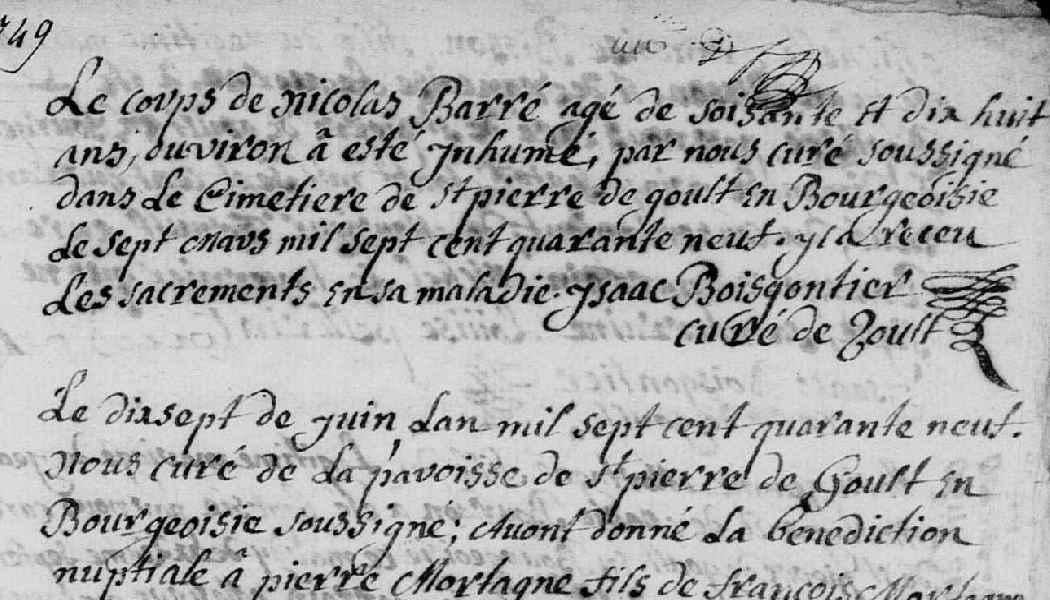 1749
Le corps de Nicolas Barré agé de soisante et dix huit
ans, ouviron â esté ynhumé, par nous curé soussigné
dans Le Cimetiere de st pierre de goult en Bourgeoisie
Le sept mars mil sept cent quarante neuf. y la receu
Les sacrements en sa maladie. ysaac Boisgontier
curé de Goult
Le dixsept de Juin Lan mil sept cent quarante neuf.
nous curé de La paroisse de st pierre de Goult en
Bourgeoisie soussigné; Avont donné La benediction
nuptiale â pierre Mortagne fils de françois Mortagne